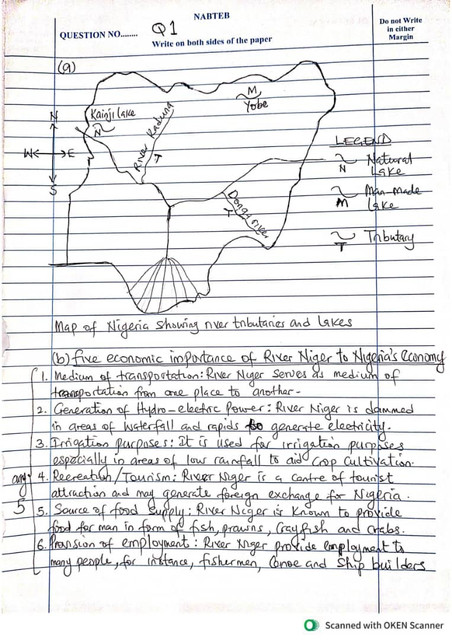 NABTEB
QUESTION NO........ Q1
Write on both sides of the paper
Do not Write
in either
Margin
(a)
N
W E
S
Kainji lake
N
River Kaduna
T
M
Yobe
Donga river
T
LEGEND
N Natural
Lake
M Man-made
Lake
T Tributary
Map of Nigeria showing river tributaries and lakes
(b) five economic importance of River Niger to Nigeria's economy
1. Medium of transportation: River Niger serves as medium of
transportation from one place to another.
2. Generation of Hydro-electric Power: River Niger is dammed
in areas of waterfall and rapids to generate electricity.
3. Irrigation purposes: It is used for irrigation purposes
especially in areas of low rainfall to aid crop cultivation.
4. Recreation/Tourism: River Niger is a centre of tourist
attraction and may generate foreign exchange for Nigeria.
any
5
5. Source of food supply: River Niger is known to provide
food for man in form of fish, prawns, crayfish and crabs.
6. Provision of employment: River Niger provide employment to
many people, for instance, fishermen, canoe and ship builders
Scanned with OKEN Scanner